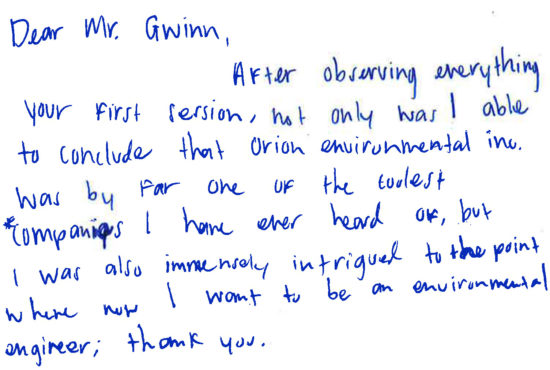 Dear Mr. Gwinn,
After observing everything
your first session, not only was I able
to conclude that Orion environmental inc.
was by far one of the coolest
*companies I have ever heard of, but
I was also immensely intrigued to the point
where now I want to be an environmental
engineer; thank you.